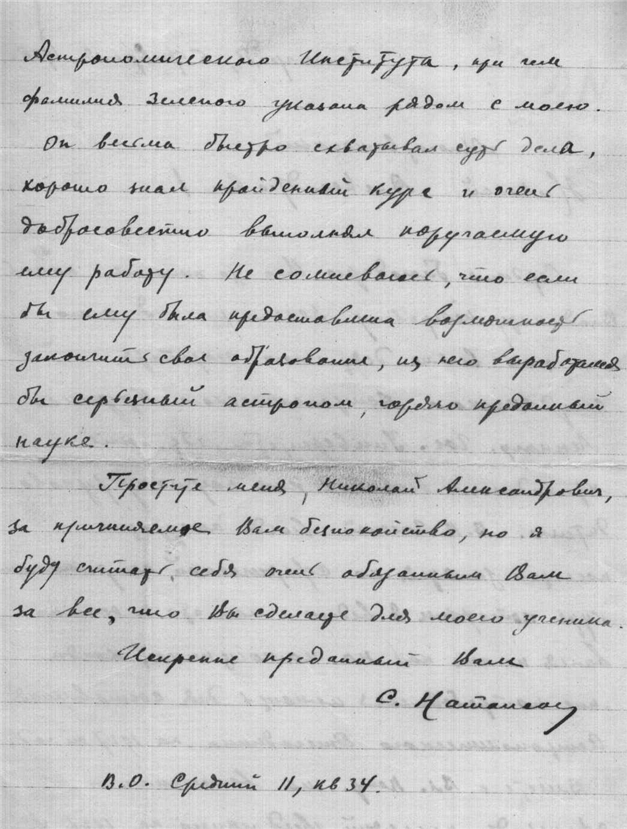 Астрономического Института, при чем
фамилия Зеленого указана рядом с моею.
Он весьма быстро схватывал суть дела,
хорошо знал пройденный курс и очень
добросовестно выполнял поручаемую
ему работу. Не сомневаюсь, что если
бы ему была предоставлена возможность
закончить свое образование, из него выработался
бы серьезный астроном, горячо преданный
науке.
Простите меня, Николай Александрович,
за причиняемое Вам беспокойство, но я
буду считать себя очень обязанным Вам
за все, что Вы сделаете для моего ученика.
Искренне преданный Вам
С. Натансон
В.О. Средний 11, кв 34.